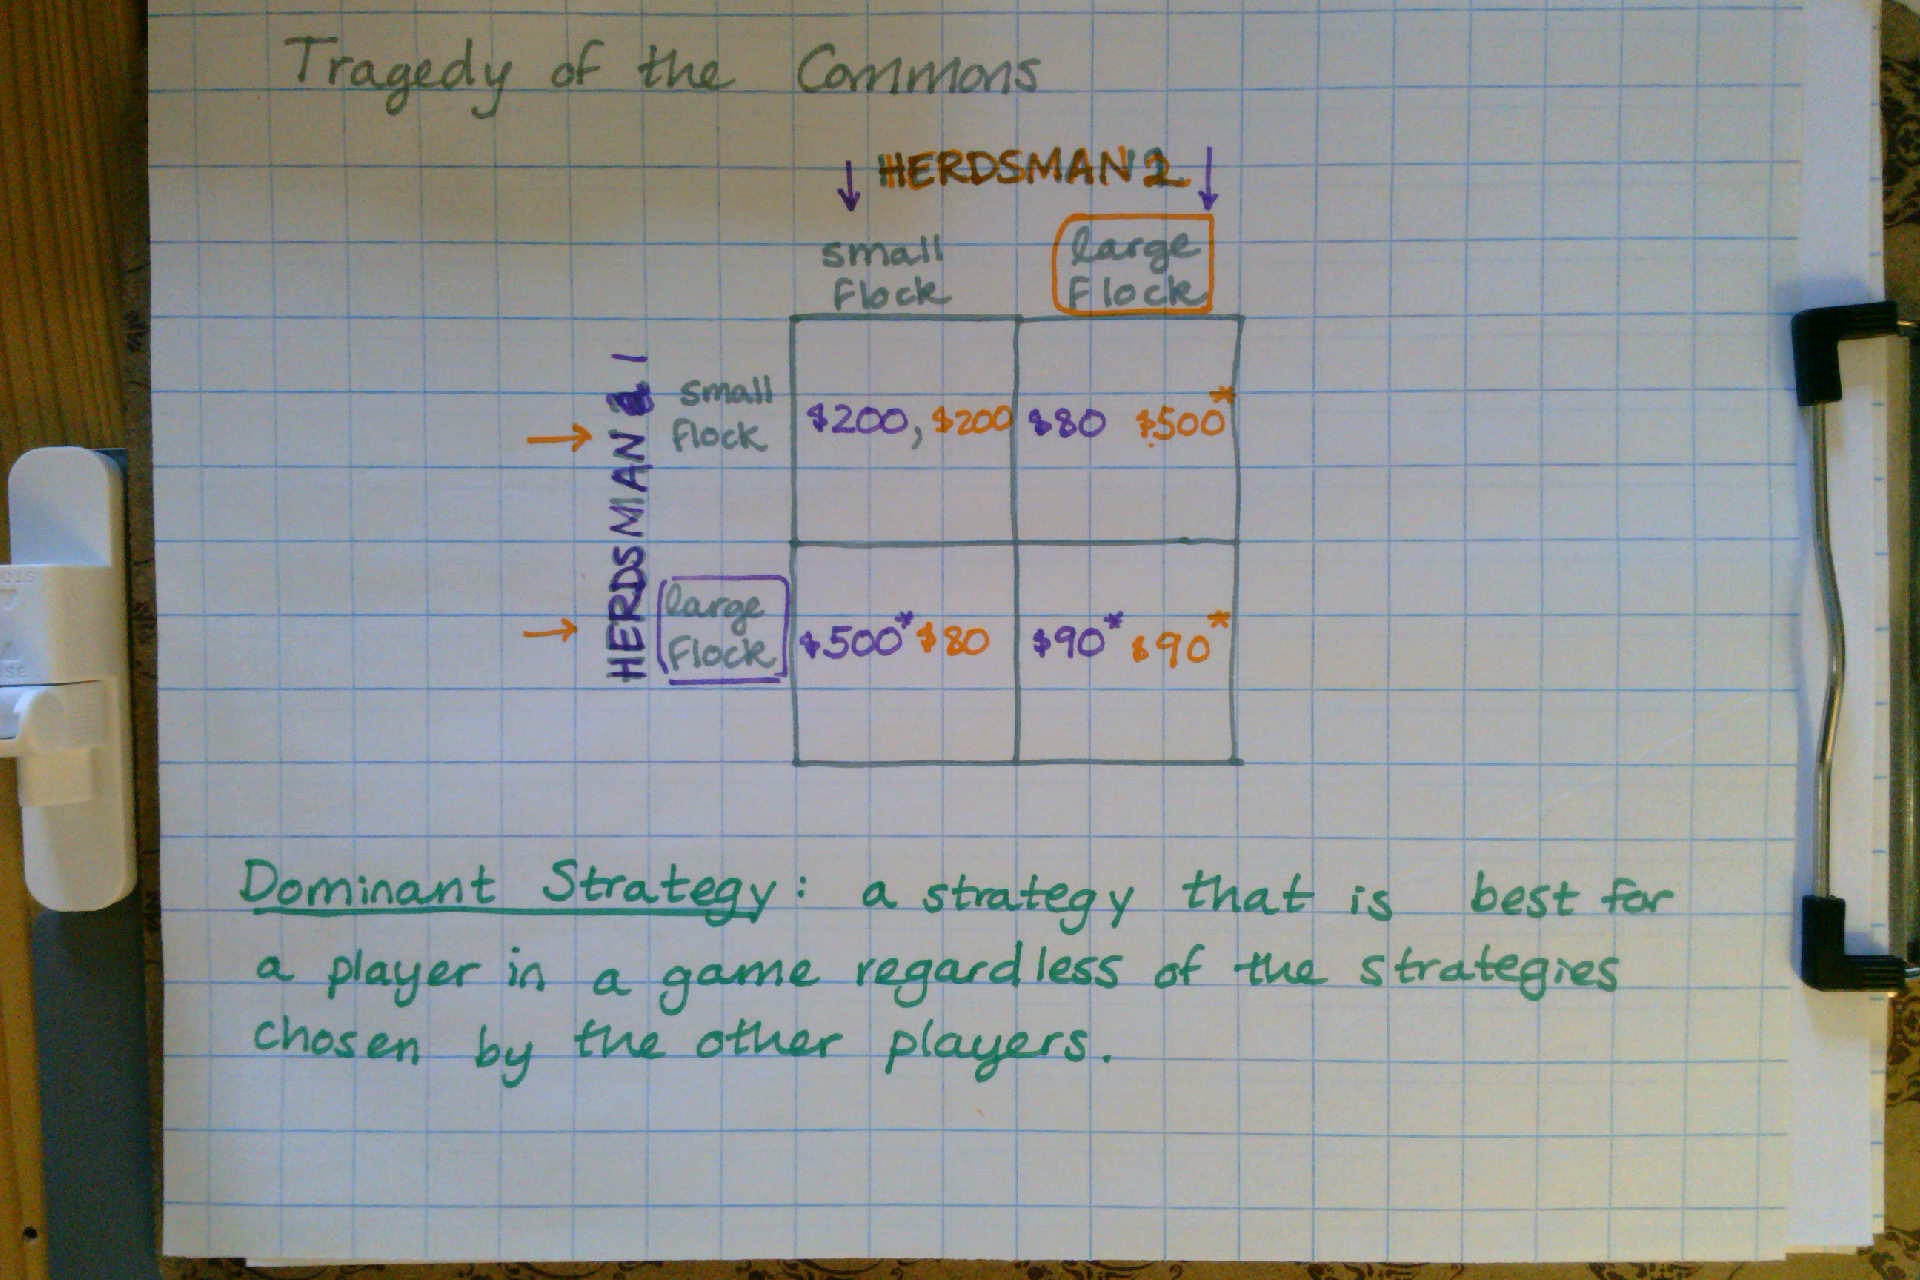 Tragedy of the Commons
HERDSMAN 2
small
Flock
large
Flock
HERDSMAN 1
small
Flock
$200, $200
$80 $500*
large
Flock
$500* $80
$90* $90*
Dominant Strategy: a strategy that is best for
a player in a game regardless of the strategies
chosen by the other players.